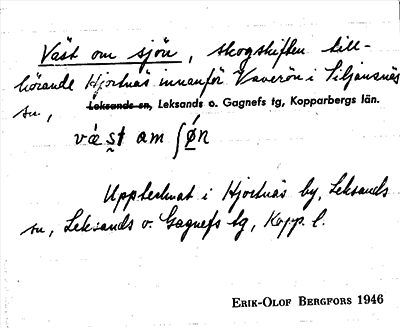 Väst om sjön, skogskiften till-
hörande Hjortnäs innanför Vaverön i Siljansnäs
sn, Leksands sn, Leksands o. Gagnefs tg, Kopparbergs län.
væst am ʃøn
Upptecknat i Hjortnäs by, Leksands
sn, Leksands o. Gagnefs tg, Kopp. l.
ERIK-OLOF BERGFORS 1946